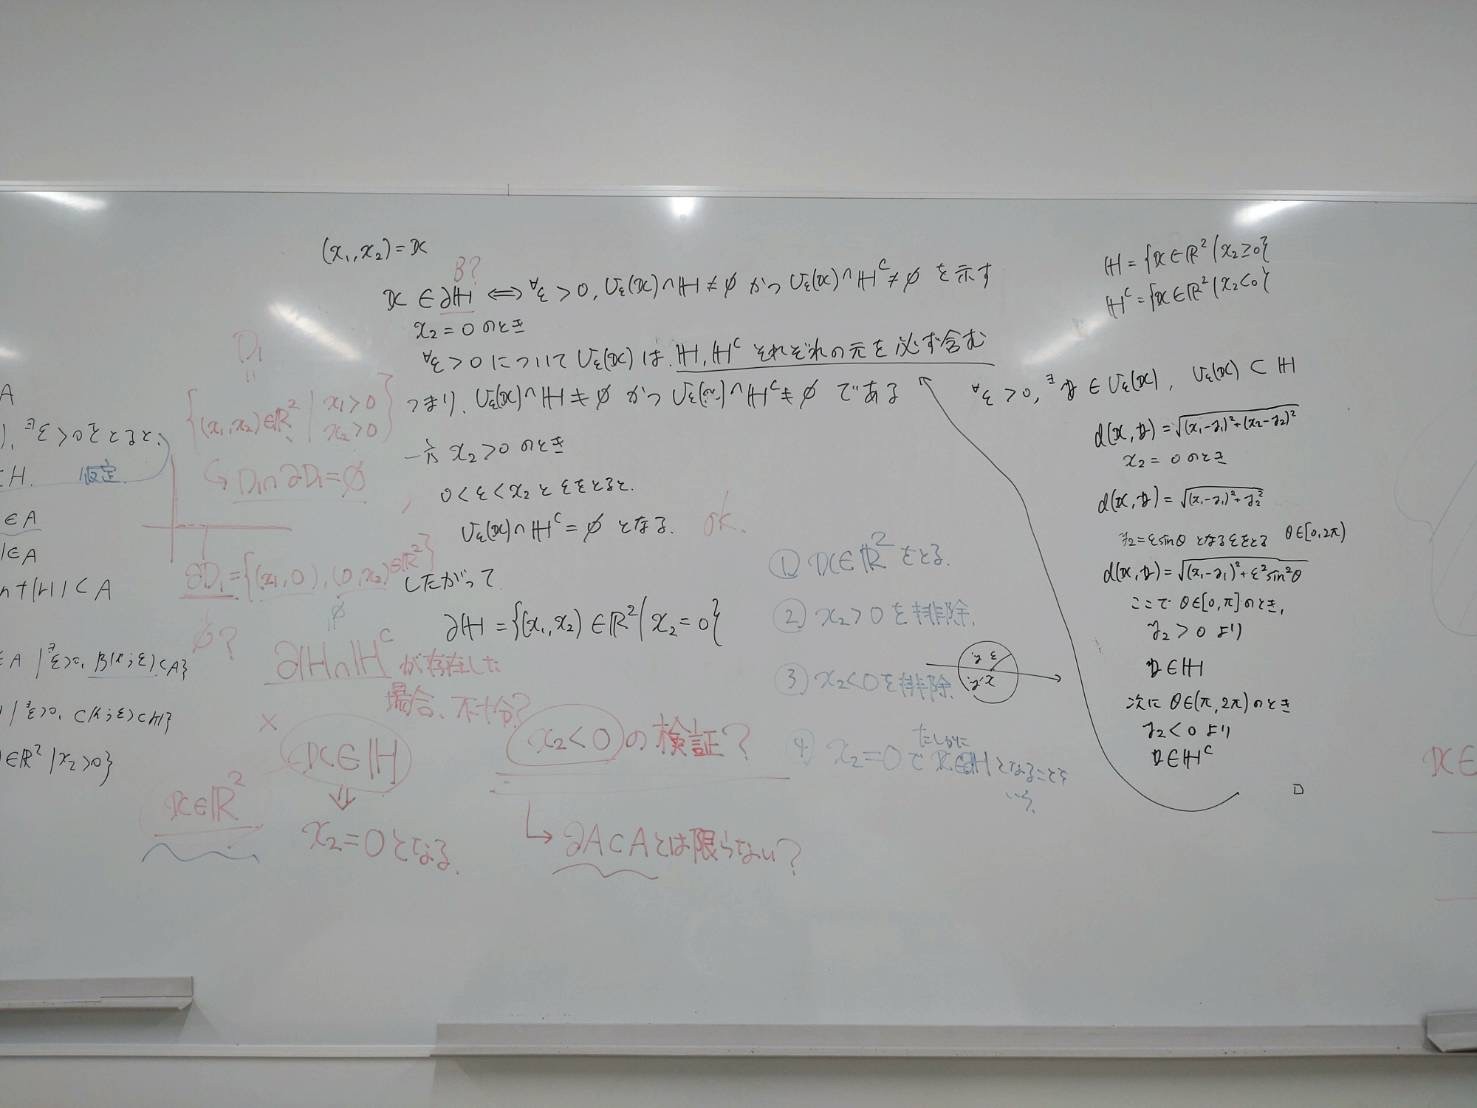 (x₁, x₂) = x
B?
x ∈ ∂H ⇔ ∀ε > 0, Uε(x) ∩ H ≠ ∅ かつ Uε(x) ∩ Hᶜ ≠ ∅ を示す
x₂ = 0 のとき
∀ε > 0 について Uε(x) は H, Hᶜ それぞれの元を必ず含む
つまり、Uε(x) ∩ H ≠ ∅ かつ Uε(x) ∩ Hᶜ ≠ ∅ である
一方 x₂ > 0 のとき
0 < ε < x₂ と εをとると、
Uε(x) ∩ Hᶜ = ∅ となる. ok.
したがって
∂H = {(x₁, x₂) ∈ R² | x₂ = 0}
H = {x ∈ R² | x₂ ≥ 0}
Hᶜ = {x ∈ R² | x₂ < 0}
∀ε > 0, ∃y ∈ Uε(x), Uε(x) ⊂ H
d(x, y) = √(x₁-y₁)²+(x₂-y₂)²
x₂ = 0 のとき
d(x, y) = √(x₁-y₁)²+y₂²
y₂ = εsinθ となる εをとる θ∈[0, 2π)
d(x, y) = √(x₁-y₁)²+ε²sin²θ
ここで θ∈[0, π] のとき,
y₂ > 0 より
y ∈ H
次に θ∈(π, 2π) のとき
y₂ < 0 より
y ∈ Hᶜ
□
D₁
=
{(x₁, x₂) ∈ R² | x₁ > 0
x₂ > 0}
↳ D₁ ∩ ∂D₁ = ∅
∂D₁ = {(x₁, 0), (0, x₂) ∈ R²}
∅?
∅
∂H ∩ Hᶜ が存在した
場合、不十分?
×
x ∈ H
⇓
x₂ = 0 となる.
x ∈ R²
x₂ < 0 の検証?
↳ ∂A ⊂ A とは限らない?
① x ∈ R² をとる.
② x₂ > 0 を排除.
③ x₂ < 0 を排除.
④ x₂ = 0 で たしかに x ∈ ∂H となることを
いう.
A
), ∃ε > 0 をとると、
⊂ H. 仮定
∈ A
∈ A
⊂ A
∈ A | ∃ε>0, B(x ; ε) ⊂ A}
| ∃ε>0, ⊂ H}
∈ R² | x₂ > 0}
x ∈